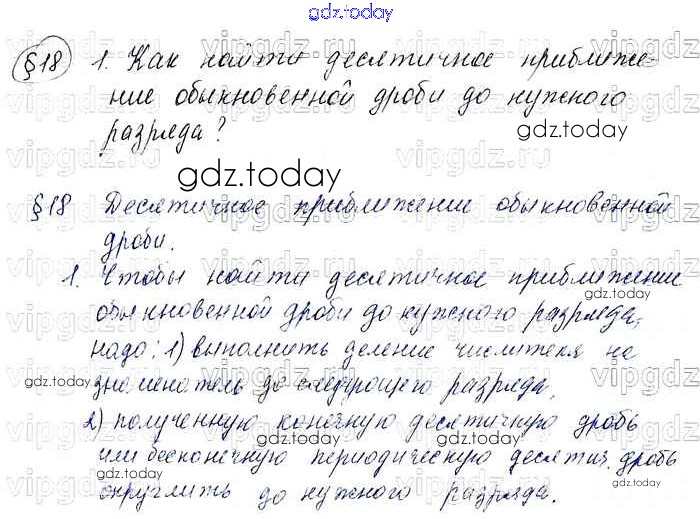 gdz.today
§18 1. Как найти десятичное приближе-
ние обыкновенной дроби до нужного
разряда?
gdz.today
gdz.today
§18 Десятичное приближение обыкновенной
дроби.
1. Чтобы найти десятичное приближение
gdz.today
обыкновенной дроби до нужного разряда,
надо: 1) выполнить деление числителя на
gdz.today
знаменатель до следующего разряда,
2) полученную конечную десятичную дробь
gdz.today
gdz.today
или бесконечную периодическую десятич. дробь
gdz.today
округлить до нужного разряда.